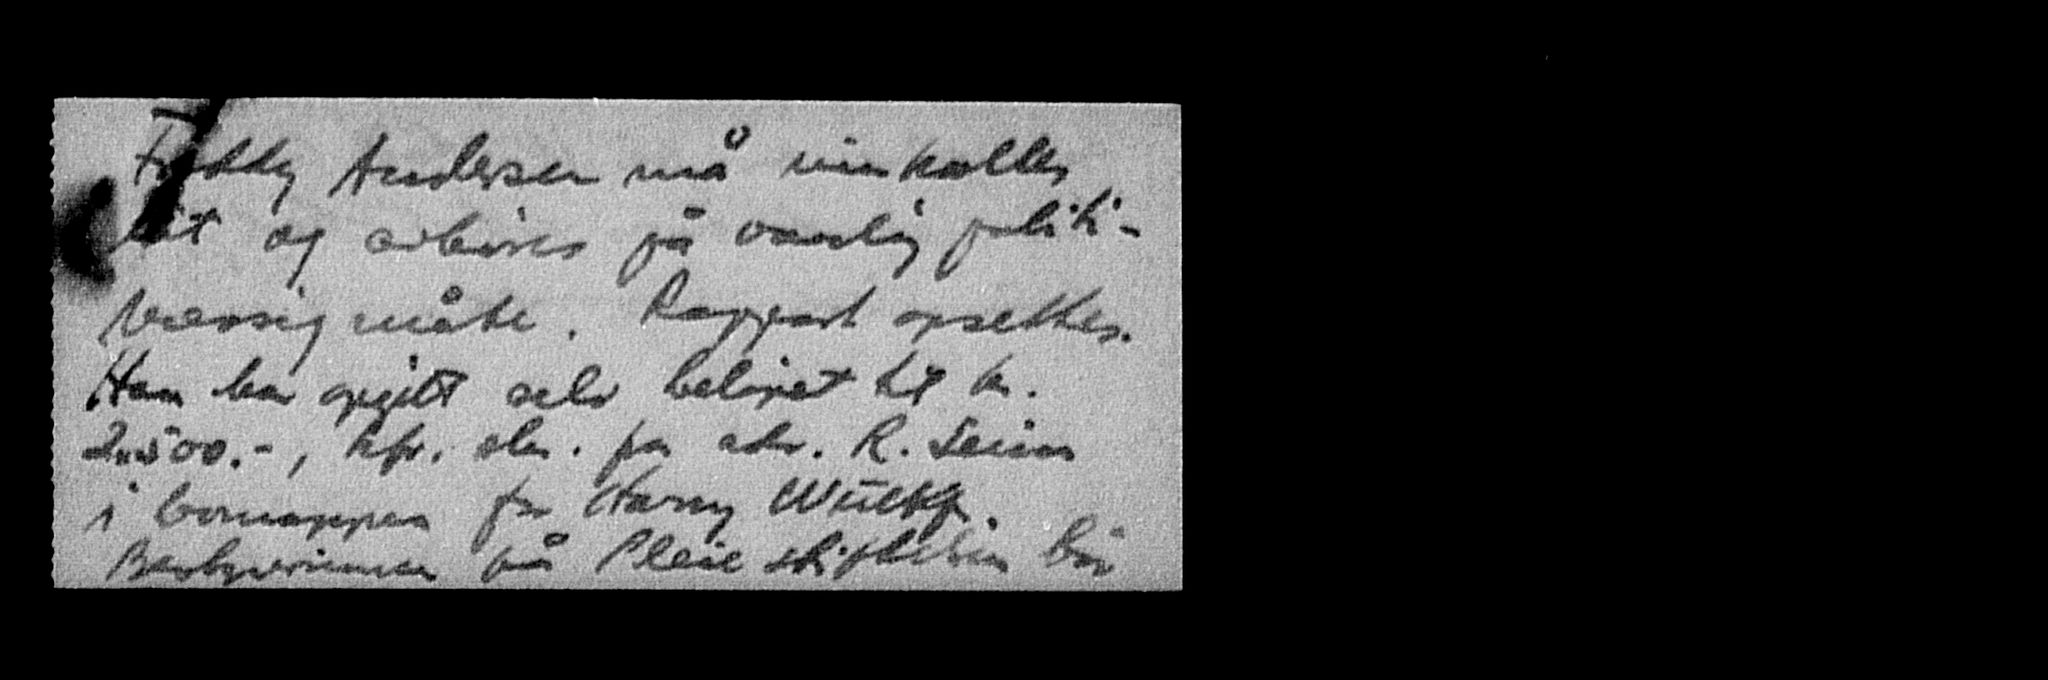 Freddy Andersen må innkalles
hit og avhøres på vanlig politi-
messig måte. Rapport opsettes.
Han har opgitt selv beløpet til kr.
2.500.-, kfr. skr. fra adv. R. Seim
i bomappen for Harry Wulff.
på skifteretten bør